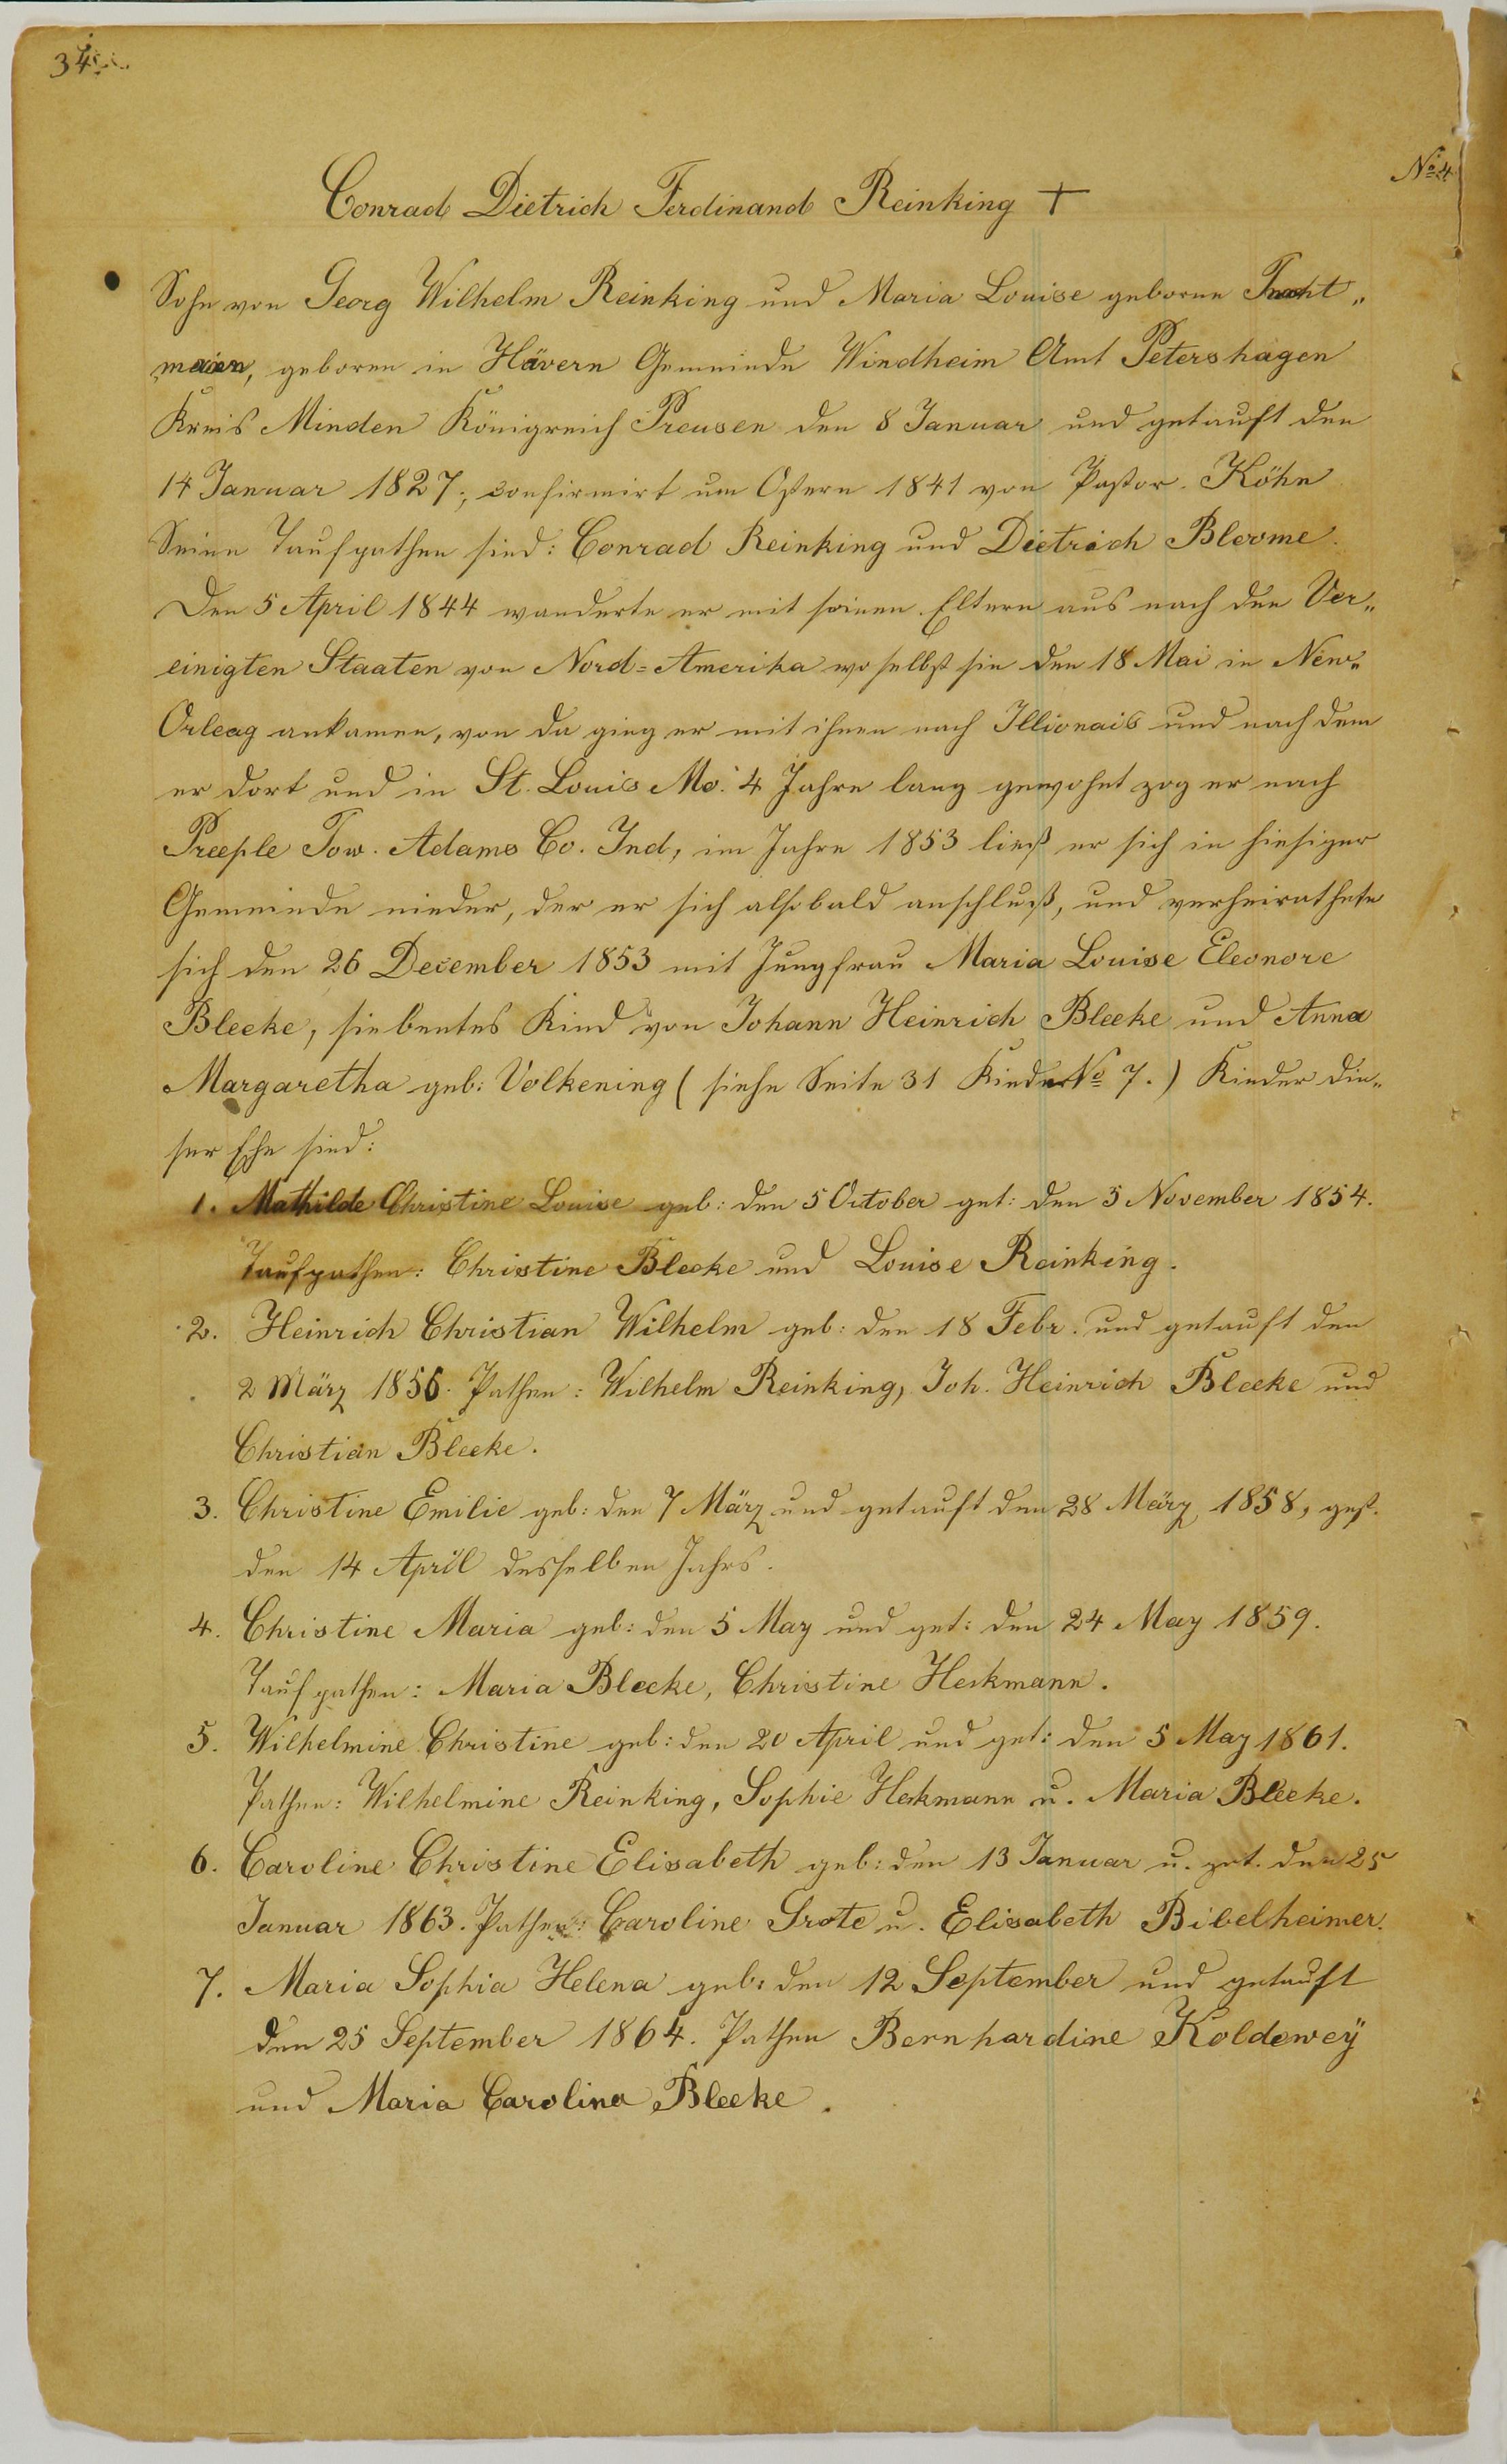 34
No 4
Conrad Dietrich Ferdinand Reinking +
Sohn von Georg Wilhelm Reinking und Maria Louise geborne Tracht„
meier, geboren in Hävern Gemeinde Windheim Amt Petershagen
Kreis Minden Königreich Preusen den 8 Januar und getauft den
14 Januar 1827; confirmirt um Ostern 1841 von Pastor Köhn
Seine Taufpathen sind: Conrad Reinking und Dietrich Bleome.
Den 5 April 1844 wanderte er mit seinen Eltern aus nach den Ver„
einigten Staaten von Nord=Amerika woselbst sie den 18 Mai in New„
Orleag ankamen, von da ging er mit ihnen nach Illionais und nach dem
er dort und in St. Louis Mo. 4 Jahre lang gewohnt zog er nach
Preeple Tow. Adams Co. Ind, im Jahre 1853 ließ er sich in hiesiger
Gemeinde nieder, der er sich alsobald anschluß, und verheirathete
sich den 26 December 1853 mit Jungfrau Maria Louise Eleonore
Bleeke, siebentes Kind von Johann Heinrich Bleeke und Anna
Margaretha geb: Volkening (siehe Seite 31 Kinder No 7.) Kinder die„
ser Ehe sind:
1. Mathilde Christine Louise geb: den 5 October get: den 5 November 1854.
Taufpathen: Christine Bleeke und Louise Reinking.
2. Heinrich Christian Wilhelm geb: den 18 Febr. und getauft den
2 März 1856. Pathen: Wilhelm Reinking, Joh. Heinrich Bleeke und
Christian Bleeke.
3. Christine Emilie geb: den 7 März und getauft den 28 März 1858, gest.
den 14 April desselben Jahrs.
4. Christine Maria geb: den 5 May und get: den 24 May 1859.
Taufpathen: Maria Bleeke, Christine Heckmann.
5. Wilhelmine Christine geb: den 20 April und get: den 5 May 1861.
Pathen: Wilhelmine Reinking, Sophie Heckmann u. Maria Bleeke.
6. Caroline Christine Elisabeth geb: den 13 Januar u. get. den 25
Januar 1863. Pathen: Caroline Grote u. Elisabeth Bibelheimer.
7. Maria Sophia Helena geb: den 12 September und getauft
den 25 September 1864. Pathen Bernhardine Koldewey
und Maria Carolina Bleeke.